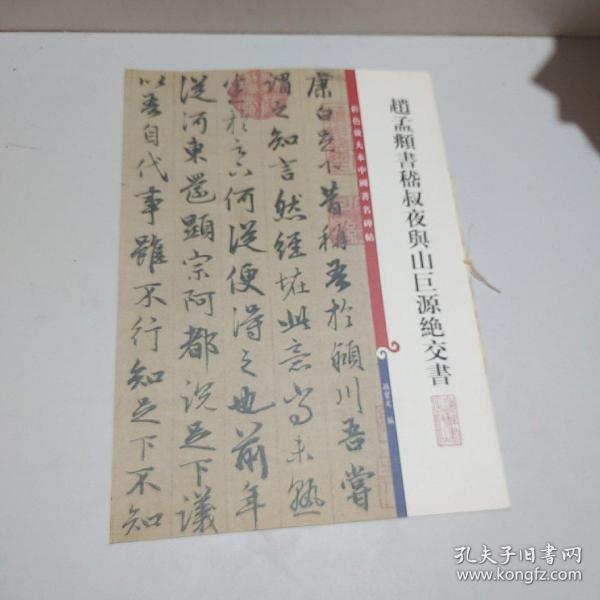 趙孟頫書嵇叔夜與山巨源絕交書
彩色放大本中國著名碑帖
孫寶文 編
康白足下昔稱吾於潁川吾嘗
謂之知言然經怪此意尚未熟
悉於足下何從便得之也前年
從河東還顯宗阿都說足下議
以吾自代事雖不行知足下不知
孔夫子旧书网
www.kongfz.com